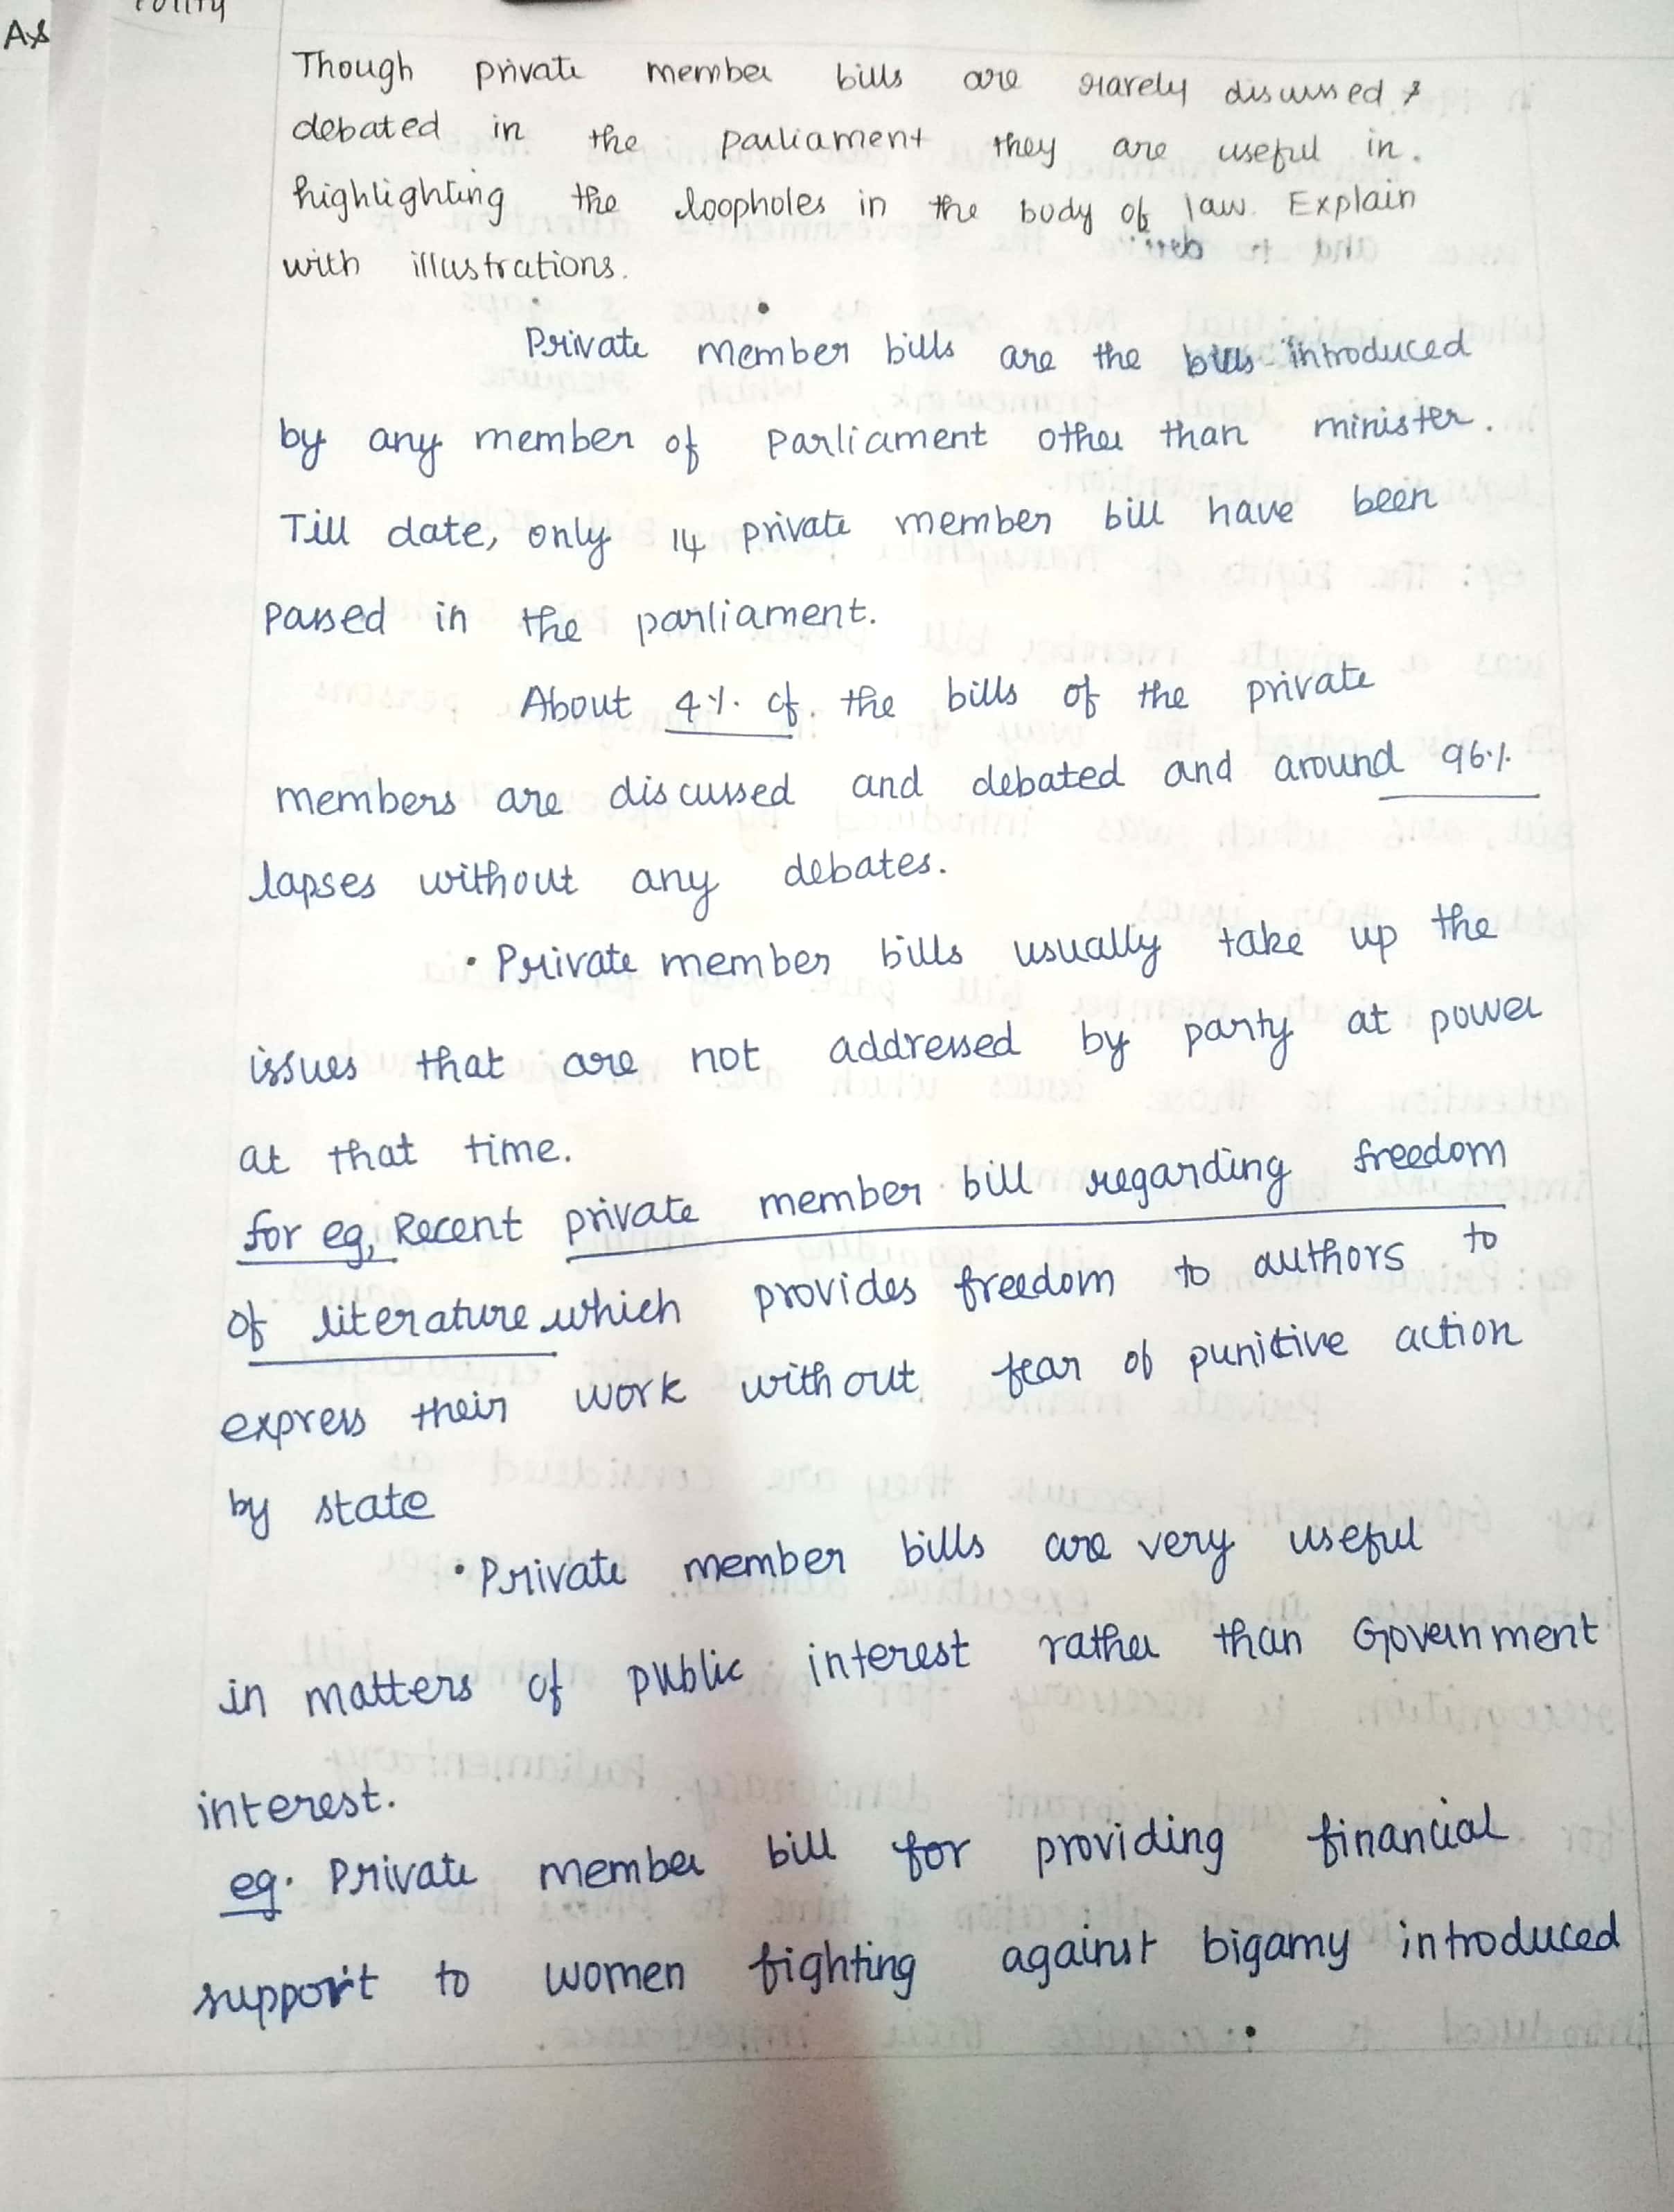 Polity
Though private member bills are rarely discussed &
debated in the parliament they are useful in.
highlighting the loopholes in the body of law. Explain
with illustrations.
Private member bills are the bills introduced
by any member of Parliament other than minister.
Till date, only 14 private member bill have been
passed in the parliament.
About 4%. of. the bills of the private
members are discussed and debated and around 96%.
lapses without any debates.
• Private member bills usually take up the
issues that are not addressed by party at power
at that time.
for eg, Recent private member bill regarding freedom
of literature which provides freedom to authors to
express their work without fear of punitive action
by state
• Private member bills are very useful
in matters of public interest rather than Government
interest.
eg. Private member bill for providing financial
support to women fighting against bigamy introduced